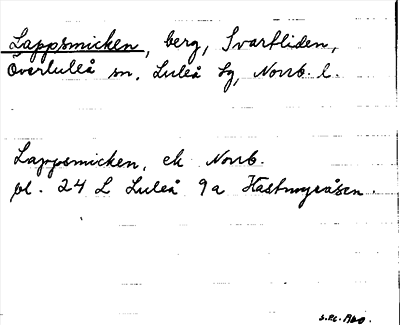 Lappsmicken, berg, Svartliden,
Överluleå sn, Luleå tg, Norrb. l.
Lappsmicken, ek Norrb.
pl. 24 L Luleå 9a Hästmyråsen.